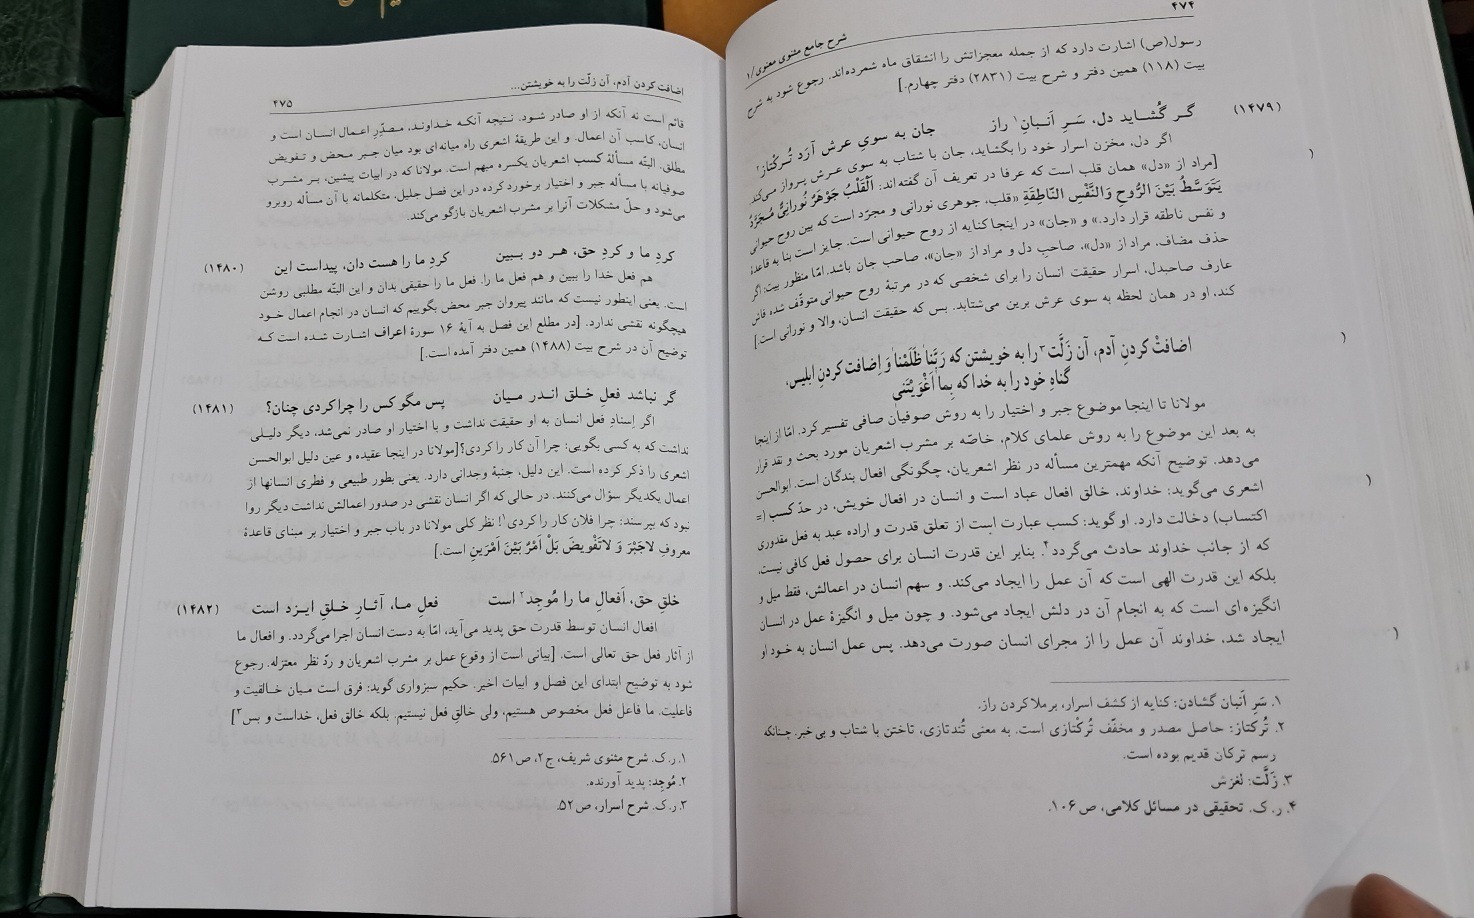 ۴۷۴
شرح جامع مثنوی معنوی/۱
رسول(ص) اشارت دارد که از جمله معجزاتش را انشقاق ماه شمرده‌اند. رجوع شود به شرح
بیت (۱۱۸) همین دفتر و شرح بیت (۲۸۳۱) دفتر چهارم.]
گر گُشاید دل، سَرِ اَنبانِ۱ راز جان به سویِ عرش آرَد تُرکتاز۲ (۱۴۷۹)
اگر دل، مخزن اسرار خود را بگشاید، جان با شتاب به سوی عرش پرواز می‌کند.
[مراد از «دل» همان قلب است که عرفا در تعریف آن گفته‌اند: اَلْقَلْبُ جَوْهَرٌ نُورانِیٌّ مُجَرَّدٌ
یَتَوَسَّطُ بَیْنَ الرُّوحِ وَالنَّفْسِ النّاطِقَةِ «قلب، جوهری نورانی و مجرّد است که بین روح حیوانی
و نفس ناطقه قرار دارد.» و «جان» در اینجا کنایه از روح حیوانی است. جایز است بنا به قاعدهٔ
حذف مضاف، مراد از «دل»، صاحبِ دل و مراد از «جان»، صاحب جان باشد. امّا منظور بیت: اگر
عارف صاحبدل، اسرار حقیقت انسان را برای شخصی که در مرتبهٔ روح حیوانی متوقّف شده فاش
کند، او در همان لحظه به سوی عرش برین می‌شتابد. بس که حقیقت انسان، والا و نورانی است.]
اضافت کردنِ آدم، آن زَلَّت۳ را به خویشتن که رَبَّنا ظَلَمْنا وَ اِضافت کردنِ ابلیس،
گناهِ خود را به خدا که بِما اَغْوَیْتَنی
مولانا تا اینجا موضوع جبر و اختیار را به روش صوفیان صافی تفسیر کرد. امّا از اینجا
به بعد این موضوع را به روش علمای کلام، خاصّه بر مشرب اشعریان مورد بحث و نقد قرار
می‌دهد. توضیح آنکه مهمترین مسأله در نظر اشعریان، چگونگی افعال بندگان است. ابوالحسن
اشعری می‌گوید: خداوند، خالق افعال عباد است و انسان در افعال خویش، در حدّ کسب (=
اکتساب) دخالت دارد. او گوید: کسب عبارت است از تعلق قدرت و اراده عبد به فعل مقدوری
که از جانب خداوند حادث می‌گردد۴. بنابر این قدرت انسان برای حصول فعل کافی نیست.
بلکه این قدرت الهی است که آن عمل را ایجاد می‌کند. و سهم انسان در اعمالش، فقط میل و
انگیزه‌ای است که به انجام آن در دلش ایجاد می‌شود. و چون میل و انگیزهٔ عمل در انسان
ایجاد شد، خداوند آن عمل را از مجرای انسان صورت می‌دهد. پس عمل انسان به خود او
۱. سَرِ اَنبان گشادن: کنایه از کشف اسرار، برملا کردن راز.
۲. تُرکتاز: حاصل مصدر و مخفّف تُرکتازی است. به معنی تُندتازی، تاختن با شتاب و بی‌خبر. چنانکه
رسم ترکان قدیم بوده است.
۳. زَلَّت: لغزش
۴. ر. ک. تحقیقی در مسائل کلامی، ص ۱۰۶.
اضافت کردن آدم، آن زلّت را به خویشتن...
۴۷۵
قائم است نه آنکه از او صادر شود. نتیجه آنکه خداوند، مقدِّرِ اعمال انسان است و
انسان، کاسب آن اعمال. و این طریقهٔ اشعری راه میانه‌ای بود میان جبر محض و تفویض
مطلق. البتّه مسألهٔ کسب اشعریان یکسره مبهم است. مولانا که در ابیات پیشین، بر مشرب
صوفیانه با مسأله جبر و اختیار برخورد کرده در این فصل جلیل، متکلمانه با آن مسأله روبرو
می‌شود و حلّ مشکلات آنرا بر مشرب اشعریان بازگو می‌کند.
کردِ ما و کردِ حق، هر دو ببین کردِ ما را هست دان، پیداست این (۱۴۸۰)
هم فعل خدا را ببین و هم فعل ما را. فعل ما را حقیقی بدان و این البتّه مطلبی روشن
است. یعنی اینطور نیست که مانند پیروان جبر محض بگوییم که انسان در انجام اعمال خود
هیچگونه نقشی ندارد. [در مطلع این فصل به آیهٔ ۱۶ سورهٔ اعراف اشارت شده است که
توضیح آن در شرح بیت (۱۴۸۸) همین دفتر آمده است.]
گر نباشد فعلِ خلق اندر میان پس مگو کس را چرا کردی چنان؟ (۱۴۸۱)
اگر اِسنادِ فعل انسان به او حقیقت نداشت و با اختیار او صادر نمی‌شد، دیگر دلیلی
نداشت که به کسی بگویی: چرا آن کار را کردی؟[مولانا در اینجا عقیده و عین دلیل ابوالحسن
اشعری را ذکر کرده است. این دلیل، جنبهٔ وجدانی دارد. یعنی بطور طبیعی و فطری انسانها از
اعمال یکدیگر سؤال می‌کنند. در حالی که اگر انسان نقشی در صدور اعمالش نداشت دیگر روا
نبود که بپرسند: چرا فلان کار را کردی۱! نظر کلی مولانا در باب جبر و اختیار بر مبنای قاعدهٔ
معروفِ لاجَبْرَ وَ لاتَفْویضَ بَلْ اَمْرٌ بَیْنَ اَمْرَینِ است.]
خلقِ حق، اَفعالِ ما را مُوجِد۲ است فعلِ ما، آثارِ خلقِ ایزد است (۱۴۸۲)
افعال انسان توسط قدرت حق پدید می‌آید، امّا به دست انسان اجرا می‌گردد. و افعال ما
از آثار فعل حق تعالی است. [بیانی است از وقوع عمل بر مشرب اشعریان و ردّ نظر معتزله. رجوع
شود به توضیح ابتدای این فصل و ابیات اخیر. حکیم سبزواری گوید: فرق است میان خالقیت و
فاعلیت. ما فاعل فعل مخصوص هستیم، ولی خالقِ فعل نیستیم. بلکه خالق فعل، خداست و بس۳]
۱. ر. ک. شرح مثنوی شریف، ج ۲، ص ۵۶۱.
۲. مُوجِد: پدید آورنده.
۳. ر. ک. شرح اسرار، ص ۵۲.